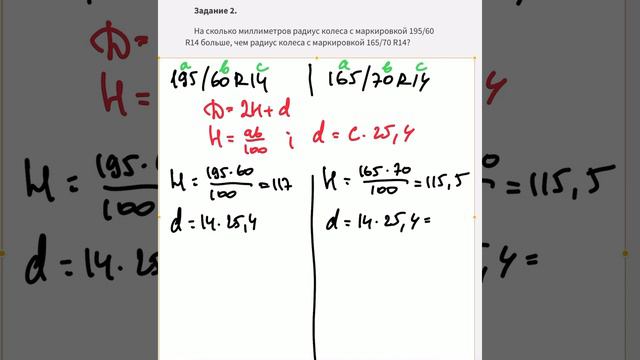 Задание 2.
На сколько миллиметров радиус колеса с маркировкой 195/60
R14 больше, чем радиус колеса с маркировкой 165/70 R14?
a b c a b c
195/60 R14 | 165/70 R14
D = 2H + d
H = ab/100 ; d = c · 25,4
H = 195·60/100 = 117
H = 165·70/100 = 115,5
d = 14 · 25,4
d = 14 · 25,4 =